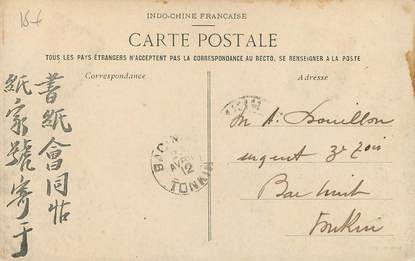 15f
INDO-CHINE FRANÇAISE
CARTE POSTALE
TOUS LES PAYS ÉTRANGERS N'ACCEPTENT PAS LA CORRESPONDANCE AU RECTO, SE RENSEIGNER A LA POSTE
Correspondance
Adresse
書紙會同帖
紙家號寄于
BAC-N
AVRIL
12
TONKIN
M A. Douillon
sergent 3e
Bac Ninh
Tonkin